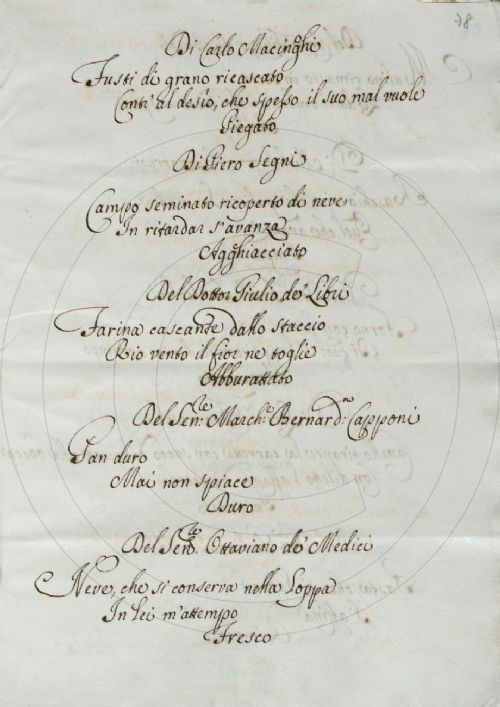 78
Di Carlo Macinghi
Fusti di grano ricascato
Cont' al desío, che spesso il suo mal vuole
Piegato
Di Piero Segni
Campo seminato ricoperto di neve
In ritardar s'avanza
Agghiacciato
Del Dottor Giulio de' Libri
Farina cascante dallo staccio
Rio vento il fior ne toglie
Abburattato
Del Sen:le March:e Bernard:no Capponi
Pan duro
Mai non spiace
Duro
Del Sen:le Ottaviano de' Medici
Neve, che si conserva nella Loppa
In lei m'attempo
Fresco